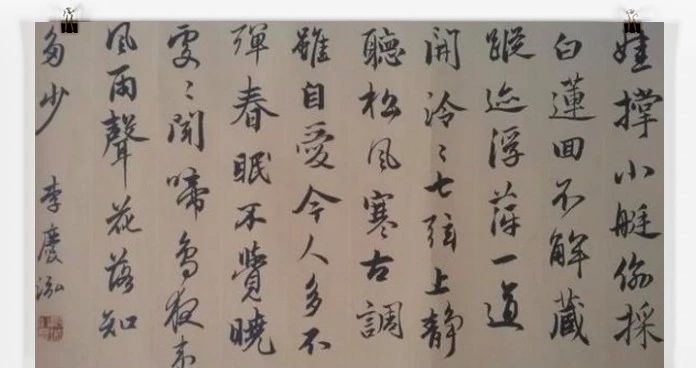 娃撐小艇偷採
白蓮回不解藏
蹤迹浮萍一道
開泠〻七弦上靜
聽松風寒古調
雖自愛今人多不
彈春眠不覺曉
處〻聞啼鳥夜来
風雨聲花落知
多少
李慶泓